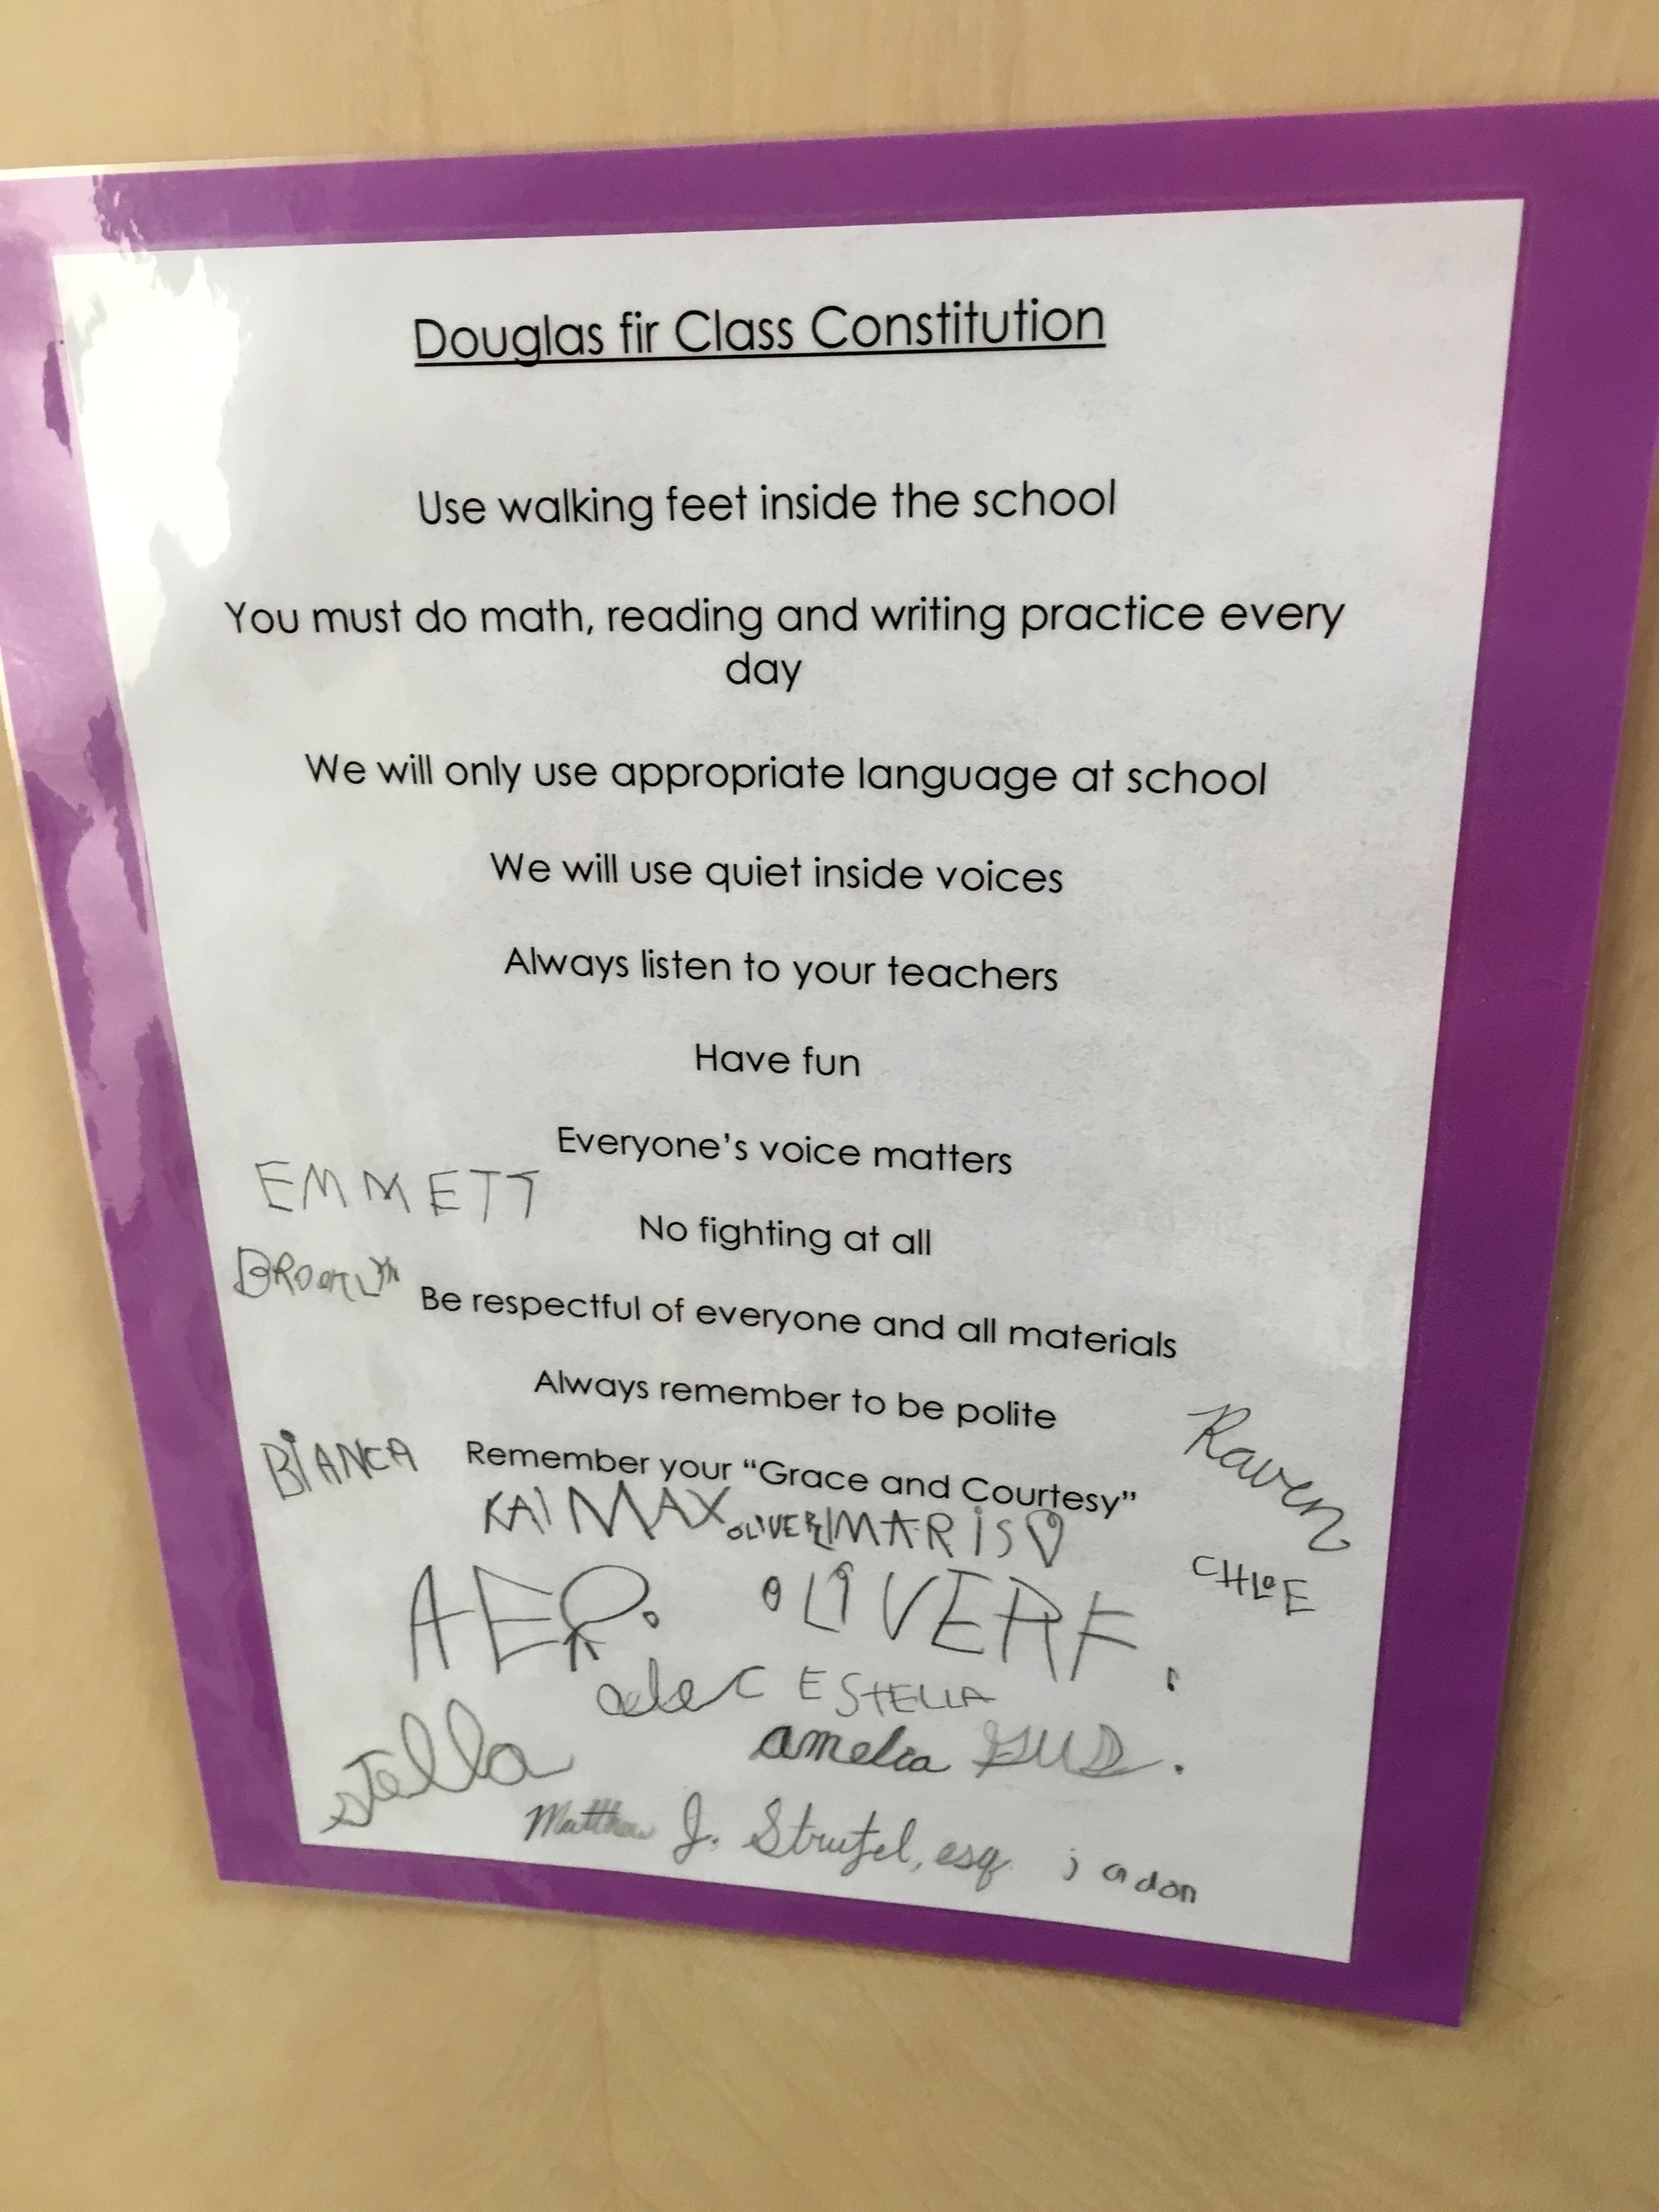 Douglas fir Class Constitution
Use walking feet inside the school
You must do math, reading and writing practice every
day
We will only use appropriate language at school
We will use quiet inside voices
Always listen to your teachers
Have fun
Everyone's voice matters
EMMETT
No fighting at all
BROOKLYN
Be respectful of everyone and all materials
Always remember to be polite
Raven
BiANCA
Remember your "Grace and Courtesy"
KAI MAX OLIVER MARiS♡
CHLOE
OLiVER F.
alec ESTELLA
stella
amelia GUS.
Matthew J. Strutzel, esq. jadon